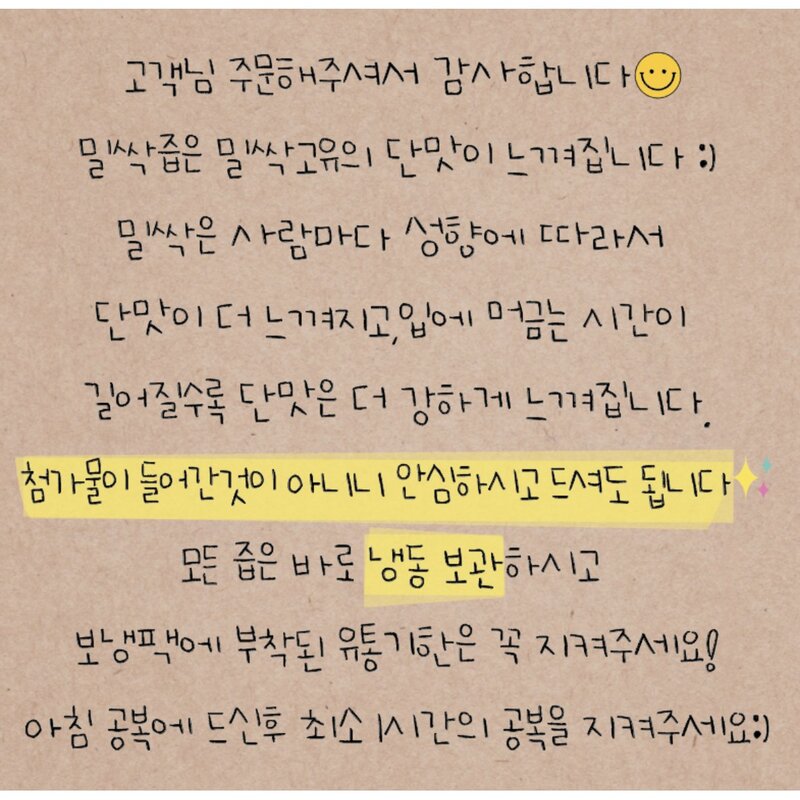 고객님 주문해주셔서 감사합니다
밀싹즙은 밀싹고유의 단맛이 느껴집니다 :)
밀싹은 사람마다 성향에 따라서
단맛이 더 느껴지고,입에 머금는 시간이
길어질수록 단맛은 더 강하게 느껴집니다.
첨가물이 들어간것이 아니니 안심하시고 드셔도 됩니다
모든 즙은 바로 냉동 보관하시고
보냉팩에 부착된 유통기한은 꼭 지켜주세요!
아침 공복에 드신후 최소 1시간의 공복을 지켜주세요:)